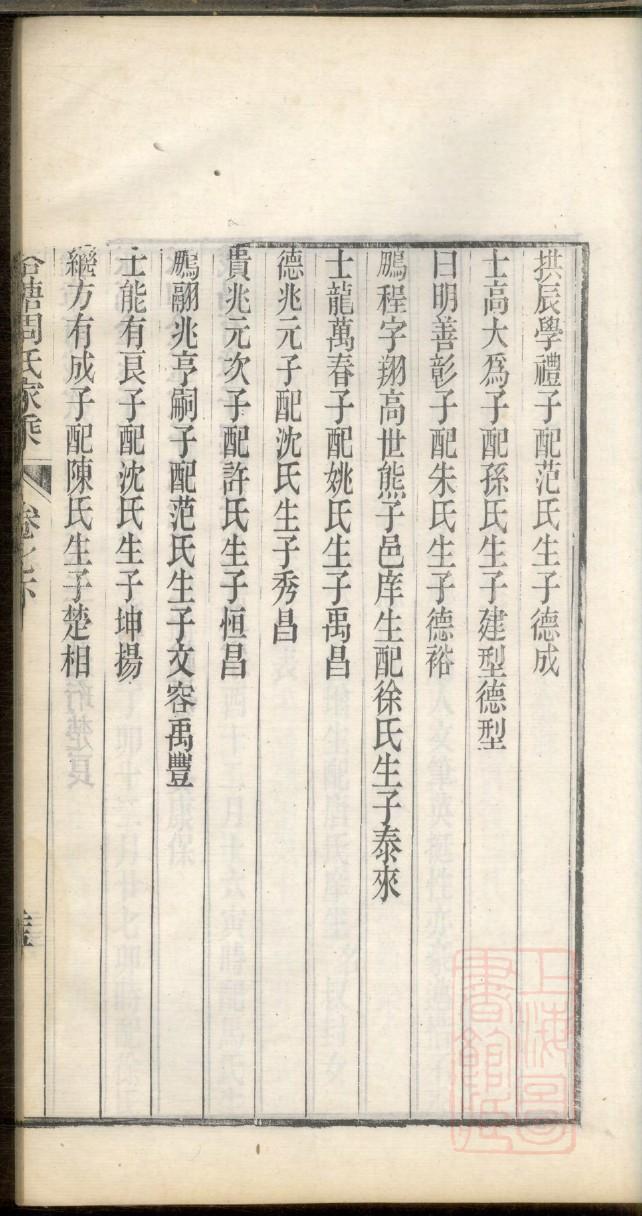 拱辰學禮子配范氏生子德成
士高大爲子配孫氏生子建型德型
曰明善彰子配朱氏生子德裕
鵬程字翔高世熊子邑庠生配徐氏生子泰來
士龍萬春子配姚氏生子禹昌
德兆元子配沈氏生子秀昌
貴兆元次子配許氏生子恒昌
鵬翮兆亨嗣子配范氏生子文容禹豐
士能有良子配沈氏生子坤揚
繼方有成子配陳氏生子楚相
塘周氏家乘
卷之
上海圖書館藏